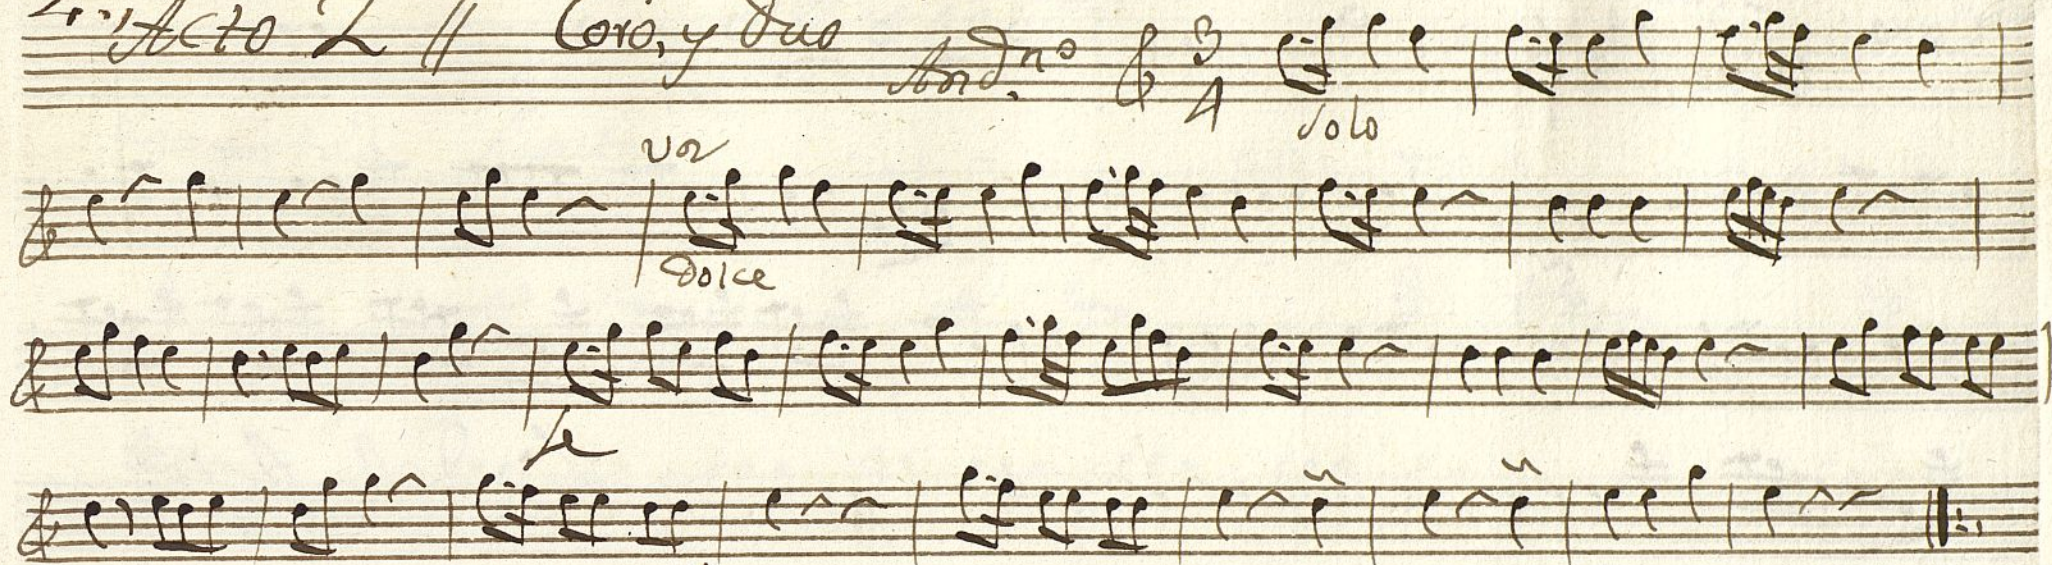 Acto 2 // Coro, y Duo And.no 3 4
solo
voz
dolce